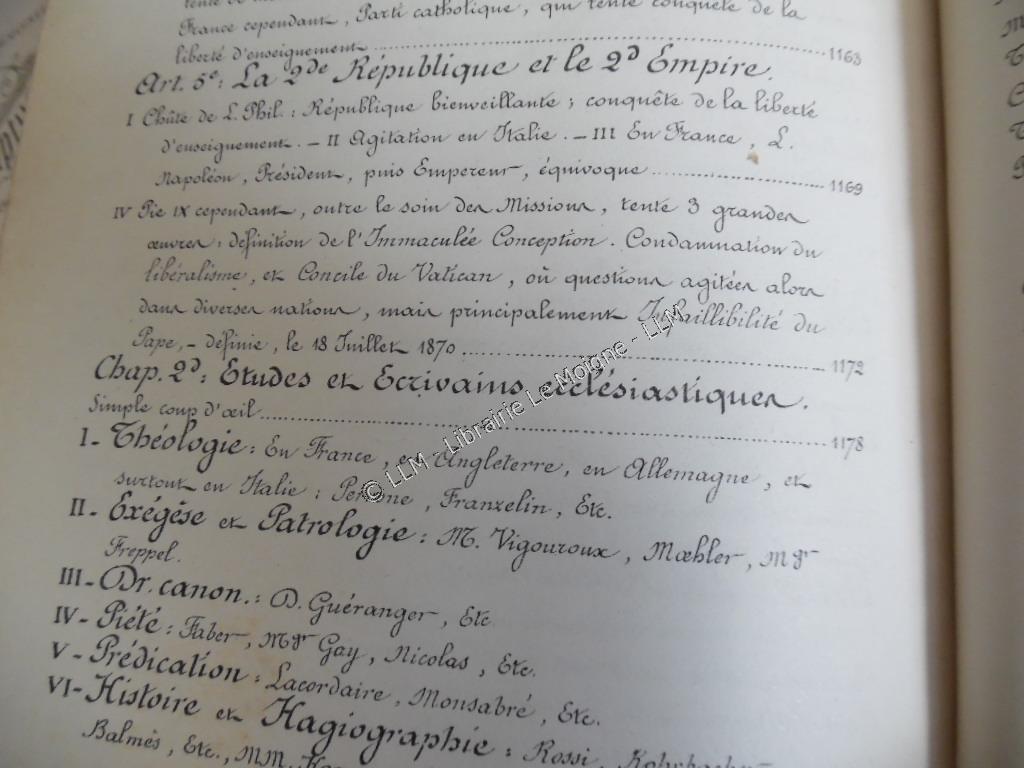 France cependant, Parti catholique, qui tente conquête de la
liberté d'enseignement ........ 1163
Art. 5e: La 2de République et le 2d Empire.
I Chûte de L. Phil.: République bienveillante; conquête de la liberté
d'enseignement. – II Agitation en Italie. – III En France, L.
Napoléon, Président, puis Empereur, équivoque ........ 1169
IV Pie IX cependant, outre le soin des Missions, tente 3 grandes
œuvres: définition de l'Immaculée Conception. Condamnation du
libéralisme, et Concile du Vatican, où questions agitées alors
dans diverses nations, mais principalement Infaillibilité du
Pape, – définie, le 18 Juillet 1870 ........ 1172
Chap. 2d: Etudes et Ecrivains ecclésiastiques.
Simple coup d'œil ........ 1178
I - Théologie: En France, en Angleterre, en Allemagne, et
surtout en Italie: Perrone, Franzelin, Etc.
II - Exégèse et Patrologie: M. Vigouroux, Mœhler, Mgr
Freppel.
III - Dr. canon.: D. Guéranger, Etc
IV - Piété: Faber, Mgr Gay, Nicolas, Etc.
V - Prédication: Lacordaire, Monsabré, Etc.
VI - Histoire et Hagiographie: Rossi, Rohrbacher
Balmès, Etc., MM.
© LLM - Librairie Le Moigne - LLM